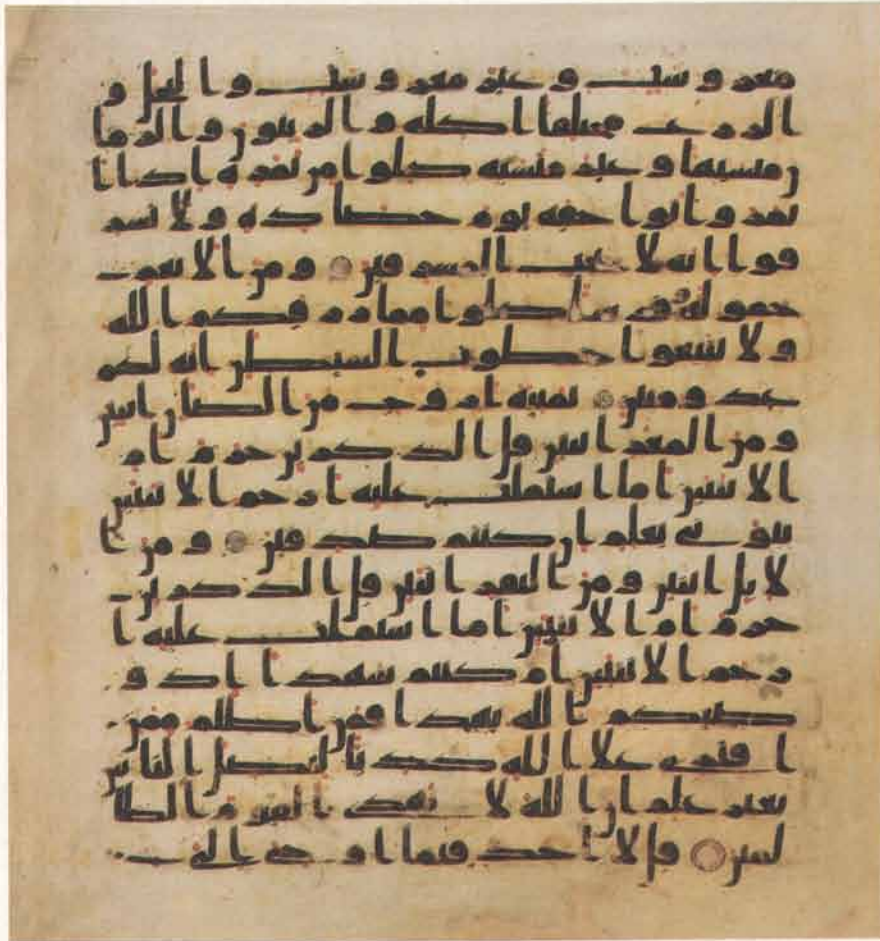 معروشت وغير معروشت والنخل و
الزرع مختلفا اكله والزيتون والرما
ن متشبها وغير متشبه كلوا من ثمره اذا ا
ثمر واتوا حقه يوم حصاده ولا تسر
فوا انه لا يحب المسرفين ومن الانعم
حمولة وفرشا كلوا مما رزقكم الله
ولا تتبعوا خطوت الشيطن انه لكم
عدو مبين ثمنية ازوج من الضان اثنين
ومن المعز اثنين قل الذكرين حرم ام
الانثيين اما اشتملت عليه ارحم الانثيين
نبوني بعلم ان كنتم صدقين ومن ا
لابل اثنين ومن البقر اثنين قل الذكرين
حرم ام الانثيين اما اشتملت عليه ا
رحم الانثيين ام كنتم شهدا اذ و
صيكم الله بهذا فمن اظلم ممن
افترى علا الله كذبا ليضل الناس
بغير علم ان الله لا يهدي القوم الظا
لمين قل لا اجد فيما اوحي الي